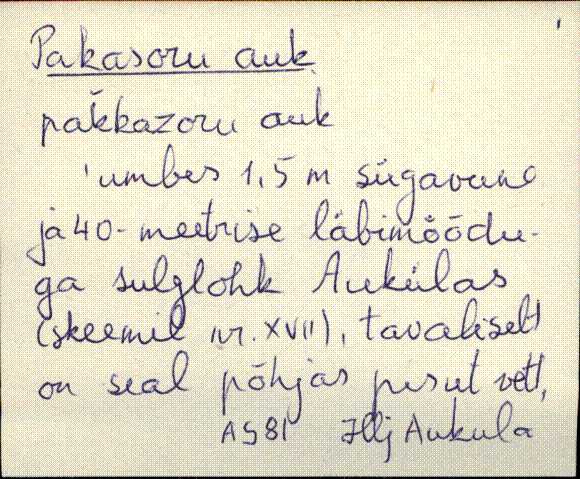 Pakasoru auk.
pakkazoru auk
'umbes 1,5 m sügavune
ja 40-meetrise läbimõõdu-
ga sulglohk Aukülas
(skeemil nr. XVII), tavaliselt
on seal põhjas pisut vett,
AS81 Jllj Aukula